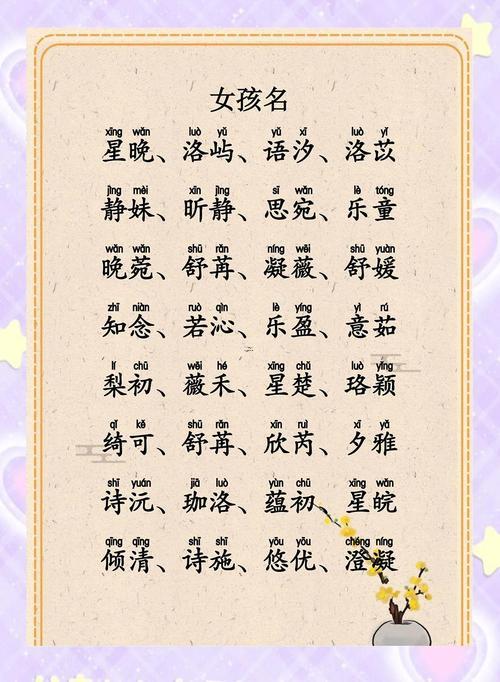 女孩名
xīng wǎn luò yǔ yǔ xī luò yǐ
星晚、洛屿、语汐、洛苡
jìng mèi xīn jìng sī wǎn lè tóng
静妹、昕静、思宛、乐童
wǎn wǎn shū rǎn níng wēi shū yuàn
晚菀、舒苒、凝薇、舒媛
zhī niàn ruò qìn lè yíng yì rú
知念、若沁、乐盈、意茹
lí chū wēi hé xīng chǔ luò yǐng
梨初、薇禾、星楚、珞颖
qǐ kě shū rǎn xīn ruì xī yǎ
绮可、舒苒、欣芮、夕雅
shī yuán jiā luò yùn chū xīng wǎn
诗沅、珈洛、蕴初、星皖
qīng qīng shī shī yōu yōu chéng níng
倾清、诗施、悠优、澄凝